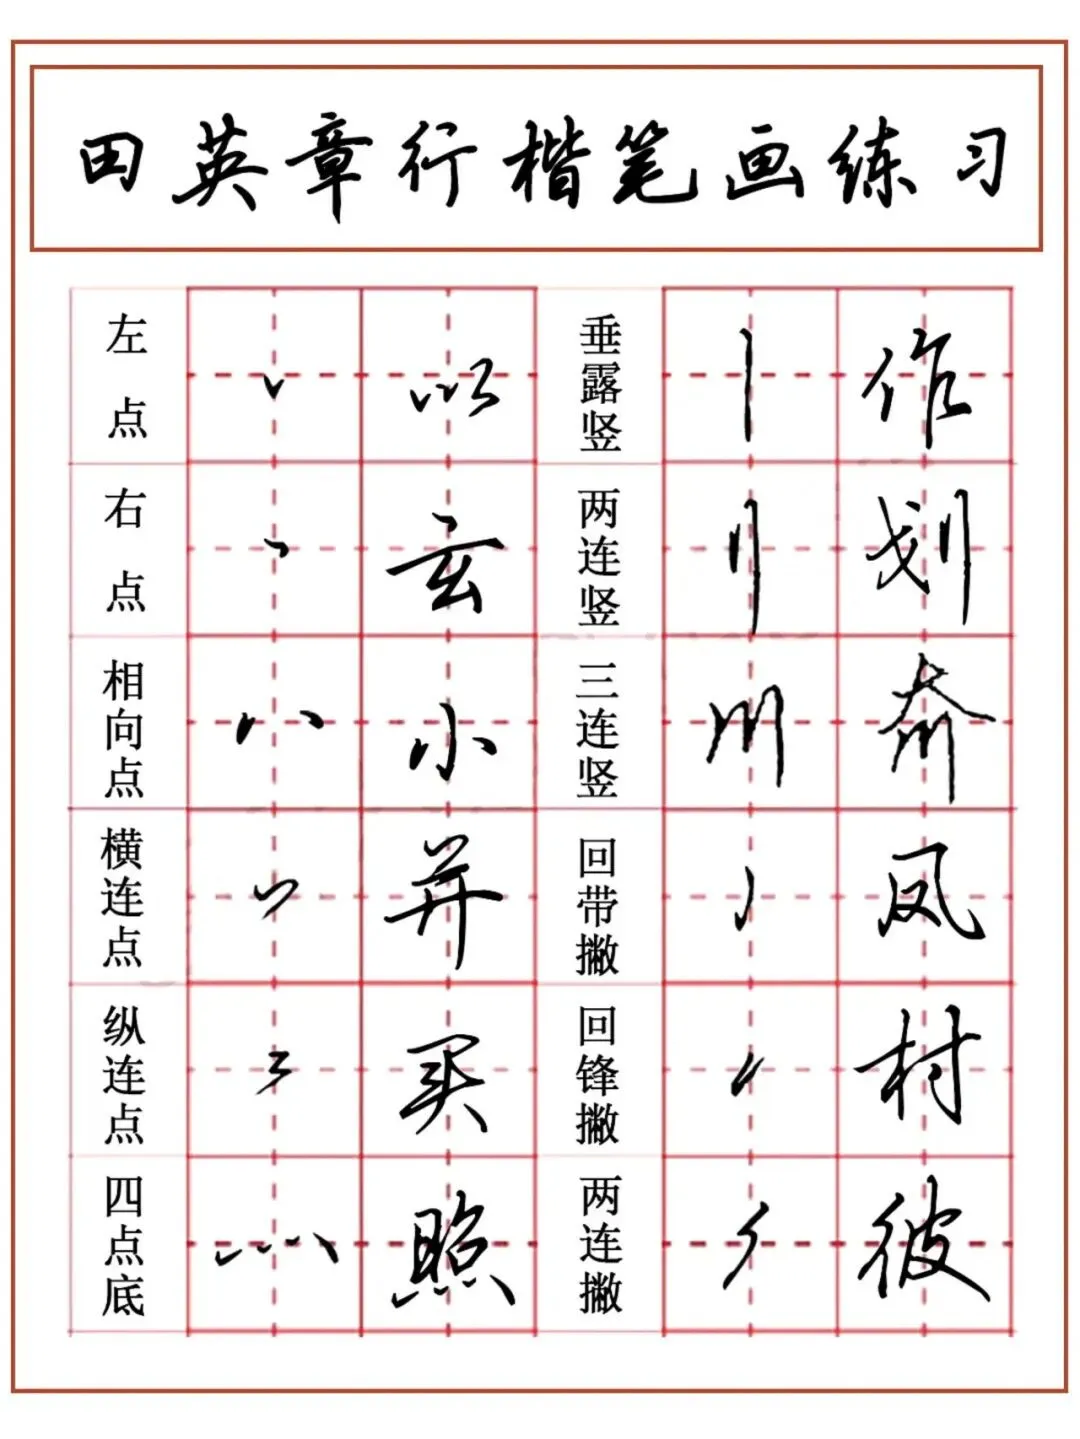 田英章行楷笔画练习
左点 以 垂露竖 作
右点 玄 两连竖 划
相向点 小 三连竖 奔
横连点 并 回带撇 凤
纵连点 买 回锋撇 村
四点底 照 两连撇 彼